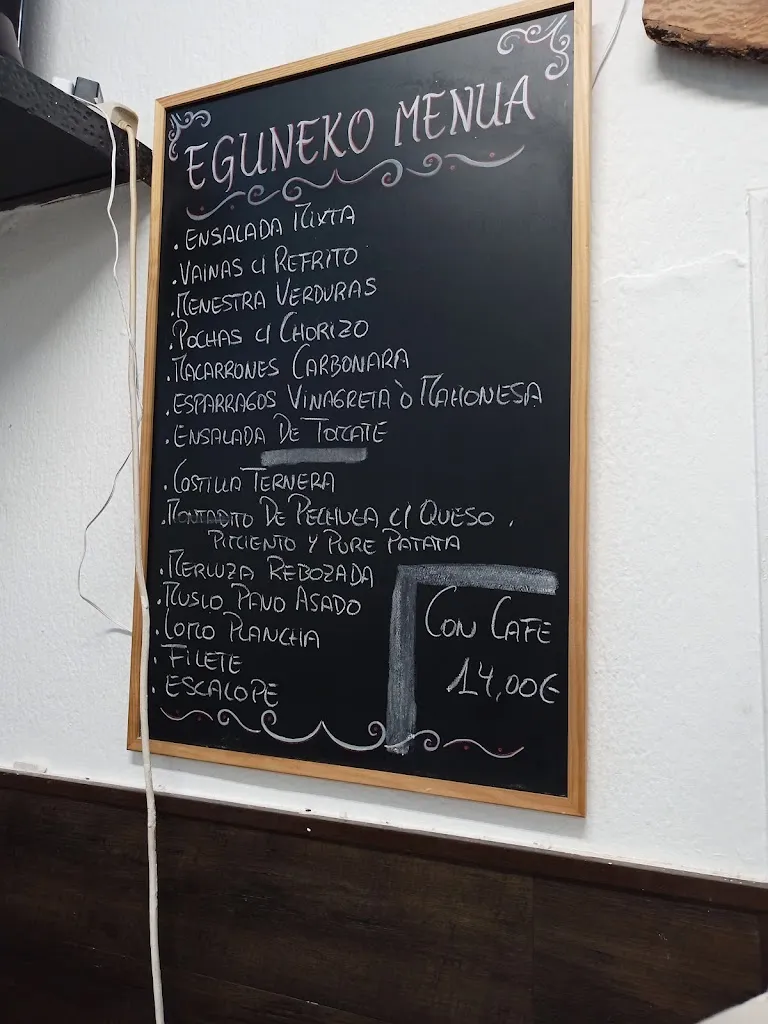 EGUNEKO MENUA
. ENSALADA MIXTA
. VAINAS C/ REFRITO
. MENESTRA VERDURAS
. POCHAS C/ CHORIZO
. MACARRONES CARBONARA
. ESPARRAGOS VINAGRETA Ò MAHONESA
. ENSALADA DE TOMATE
. COSTILLA TERNERA
. MONTADITO DE PECHUGA C/ QUESO,
PIMIENTO Y PURE PATATA
. MERLUZA REBOZADA
. MUSLO PAVO ASADO
. LOMO PLANCHA
. FILETE
. ESCALOPE
CON CAFE
14,00€